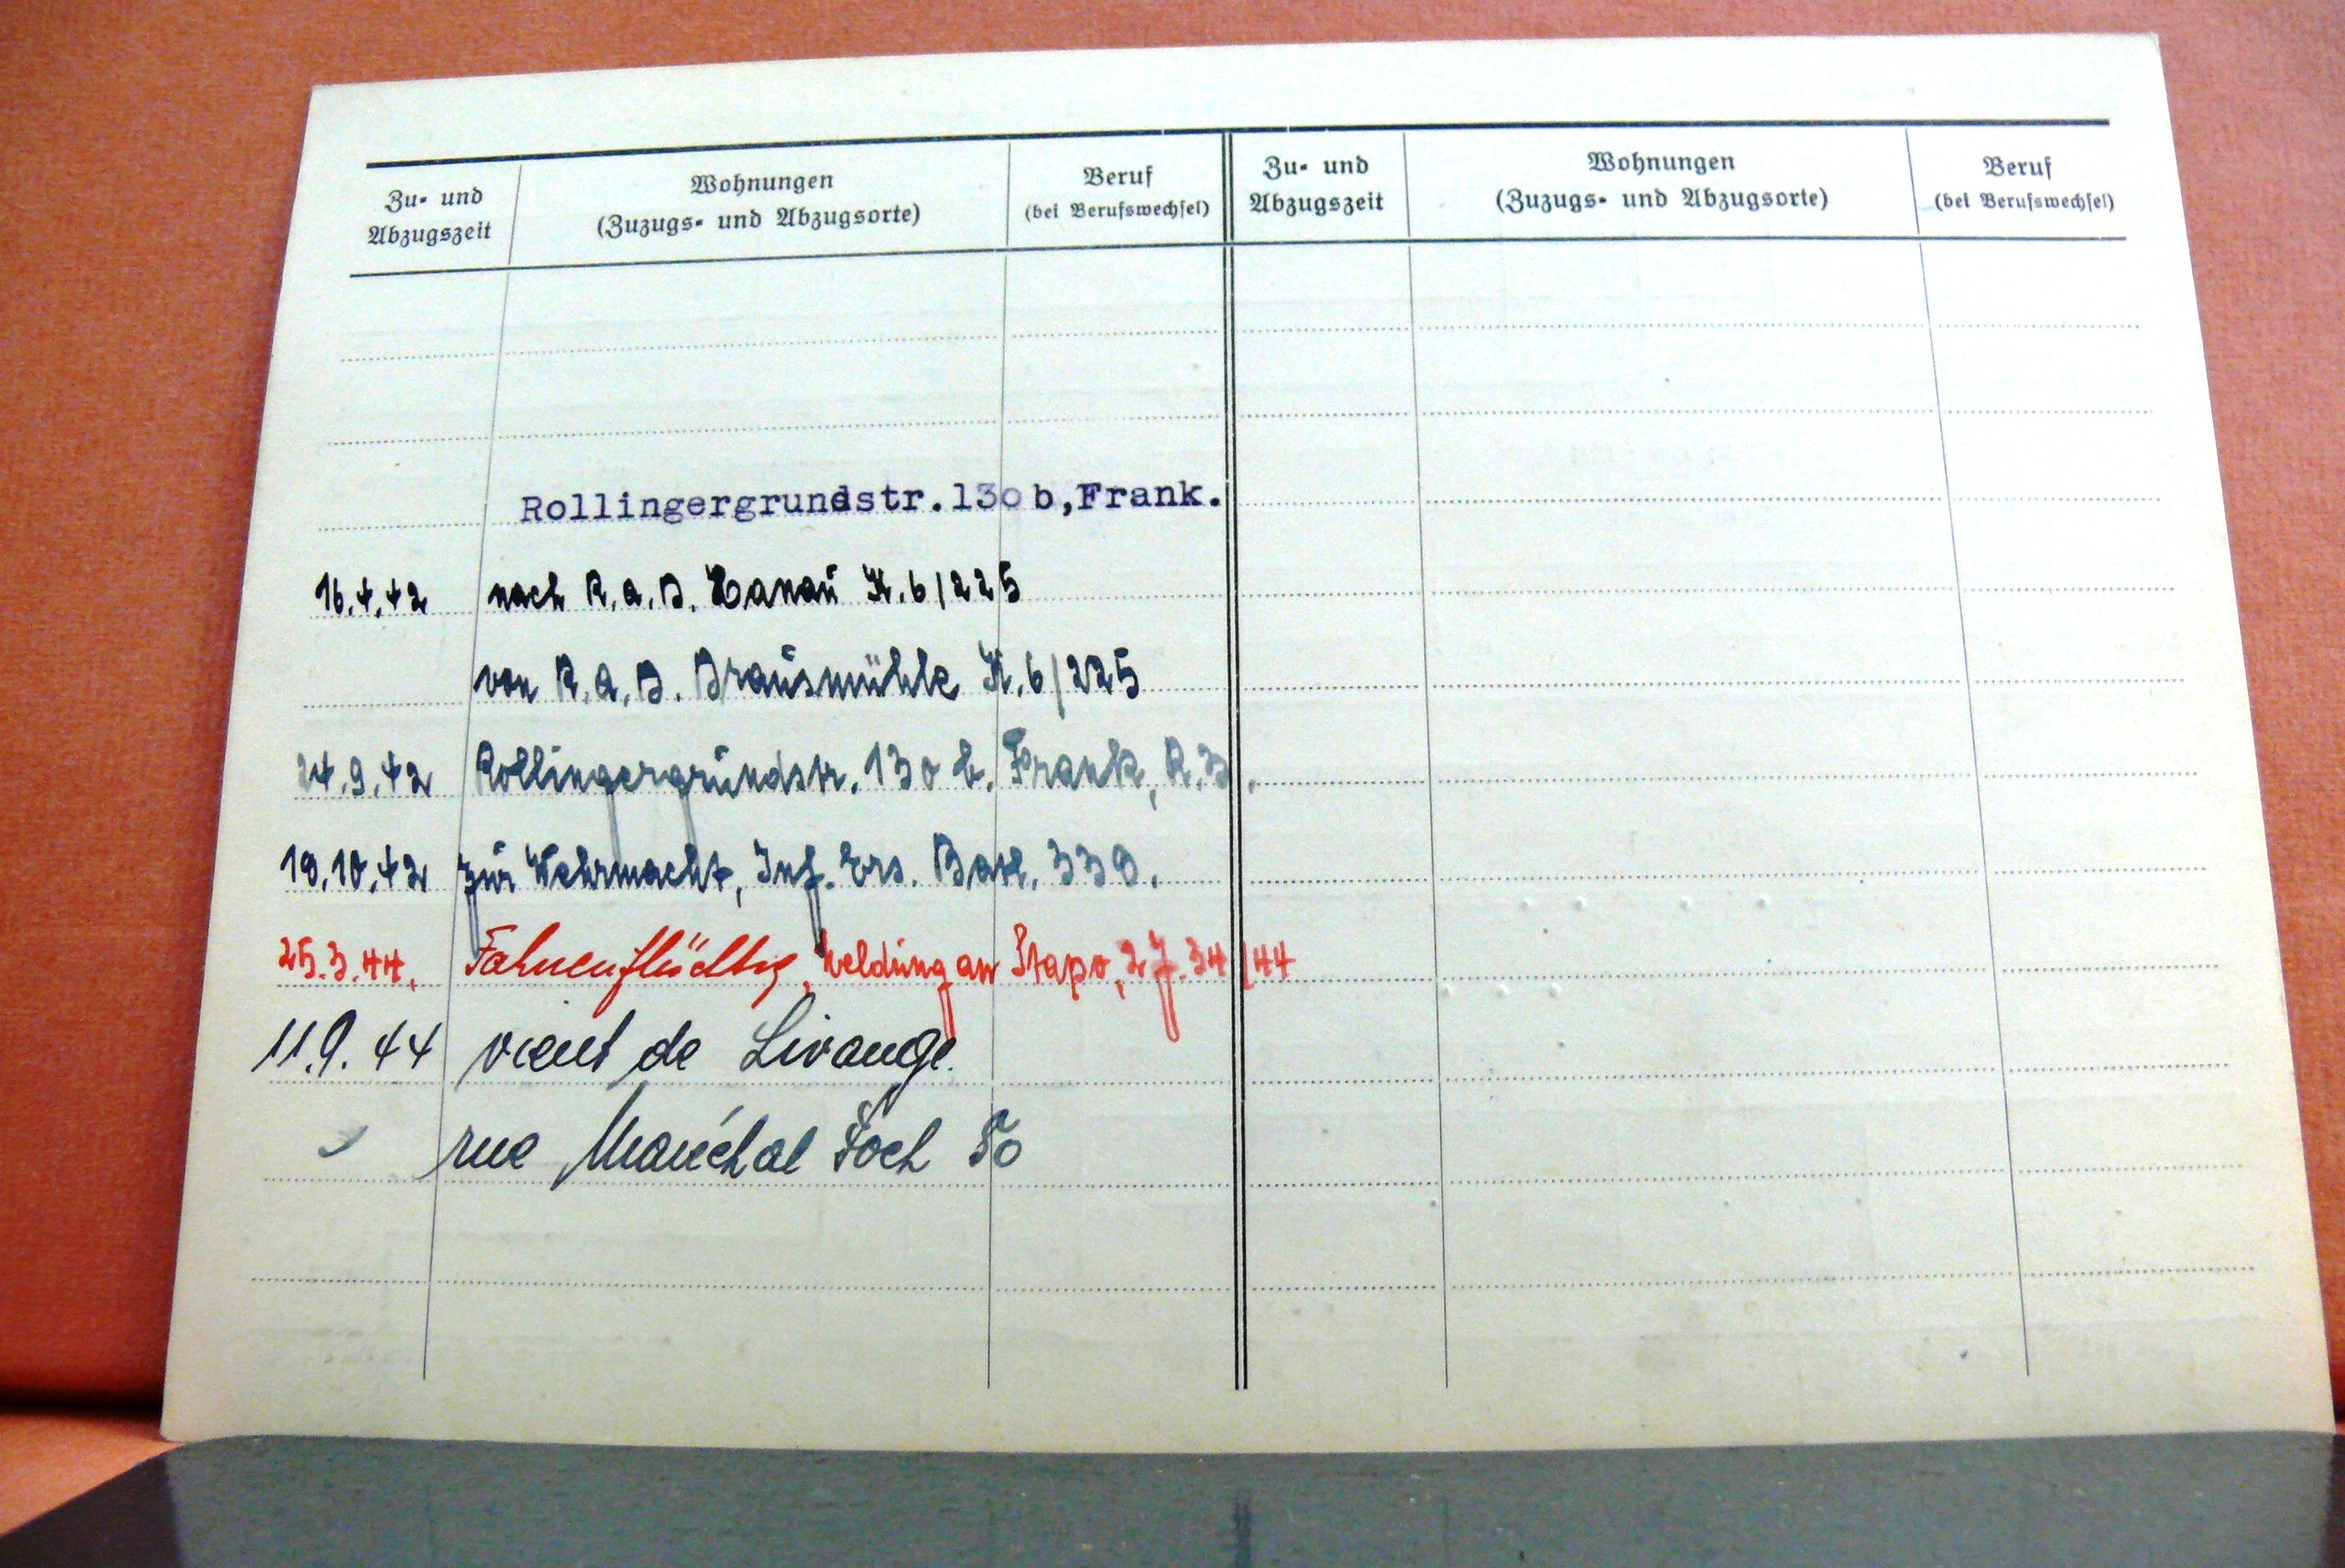 Zu- und Abzugszeit
Wohnungen (Zuzugs- und Abzugsorte)
Beruf (bei Berufswechsel)
Zu- und Abzugszeit
Wohnungen (Zuzugs- und Abzugsorte)
Beruf (bei Berufswechsel)
Rollingergrundstr.130b,Frank.
16.4.42 nach R.A.D. Hanau K.6/225
von R.A.D. Brausmühle K.6/225
24.9.42 Rollingergrundstr. 130 b. Frank, R.B.
18.10.42 zur Wehrmacht, Inf. Ers. Batl. 339.
25.3.44. Fahnenflüchtig, Meldung an Stapo, 27.34/44
11.9.44 vient de Livange.
rue Maréchal Foch 50